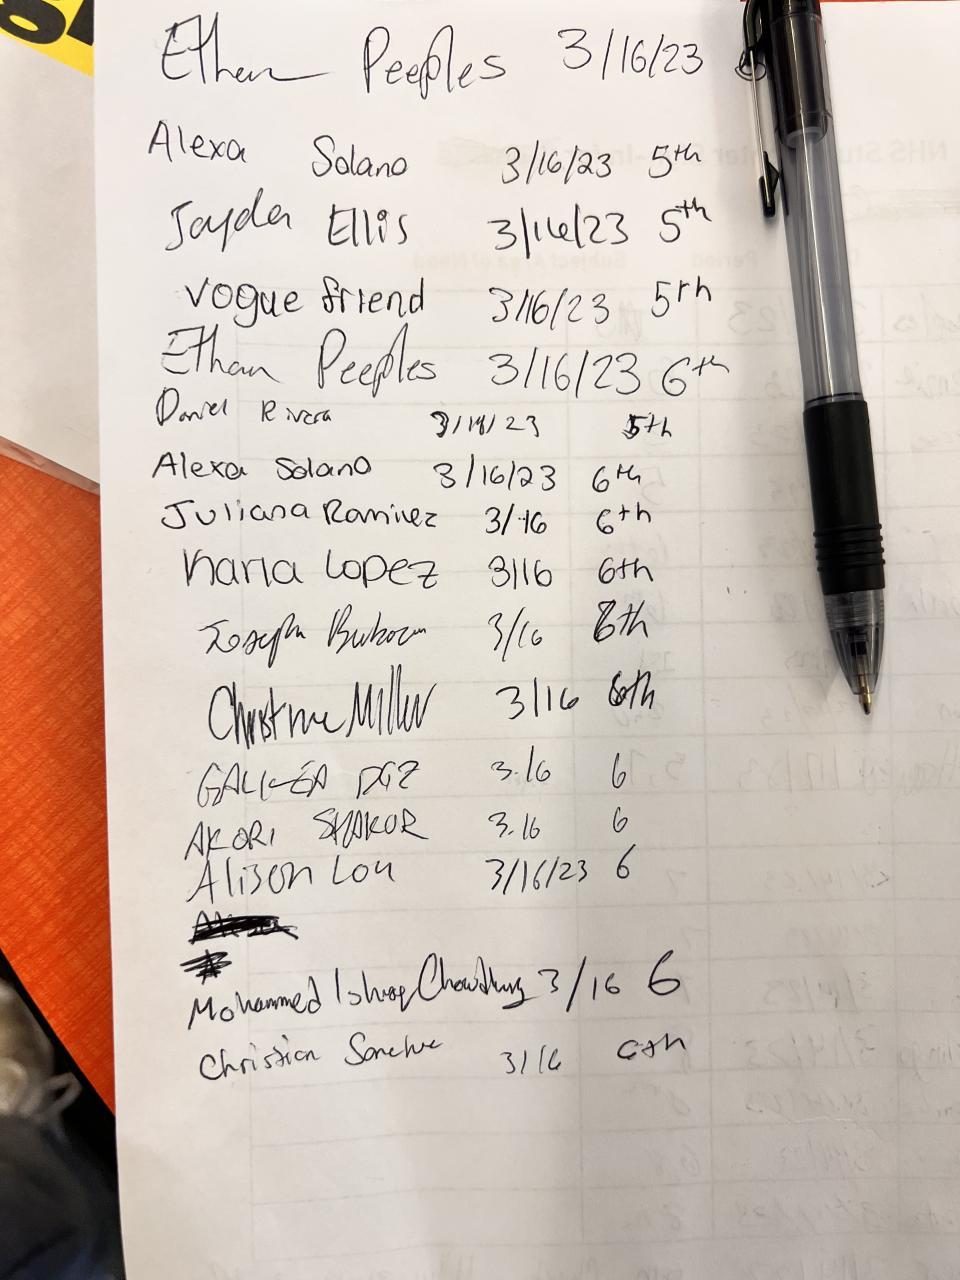 Ethan Peeples 3/16/23
Alexa Solano 3/16/23 5th
Jayda Ellis 3/16/23 5th
Vogue friend 3/16/23 5th
Ethan Peeples 3/16/23 6th
Daniel Rivera 3/16/23 5th
Alexa Solano 3/16/23 6th
Juliana Ramirez 3/16 6th
Karla Lopez 3/16 6th
Joseph 3/16 6th
Christine Miller 3/16 6th
3.16 6
AKORI SHAKUR 3.16 6
Alison Lou 3/16/23 6
Mohammed Chowdhury 3/16 6
Christian 3/16 6th